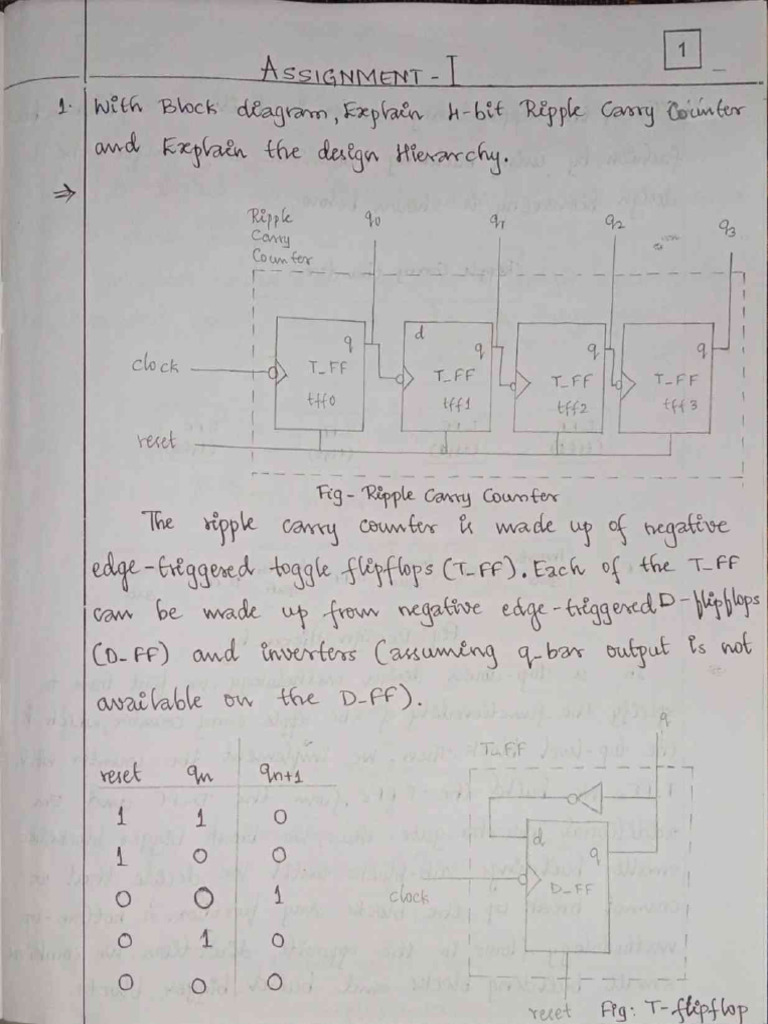 1
ASSIGNMENT-I
1. With Block diagram, Explain 4-bit Ripple Carry Counter
and Explain the design Hierarchy.
⇒
Ripple
Carry
Counter
q0 q1 q2 q3
d
q q q q
clock
T_FF T_FF T_FF T_FF
tff0 tff1 tff2 tff3
reset
Fig- Ripple Carry Counter
The ripple carry counter is made up of negative
edge-triggered toggle flipflops (T_FF). Each of the T_FF
can be made up from negative edge-triggered D-flipflops
(D_FF) and inverters (assuming q_bar output is not
available on the D_FF).
reset qn qn+1
1 1 0
1 0 0
0 0 1
0 1 0
0 0 0
q
T_FF
d
q
D_FF
clock
reset
Fig: T-flipflop